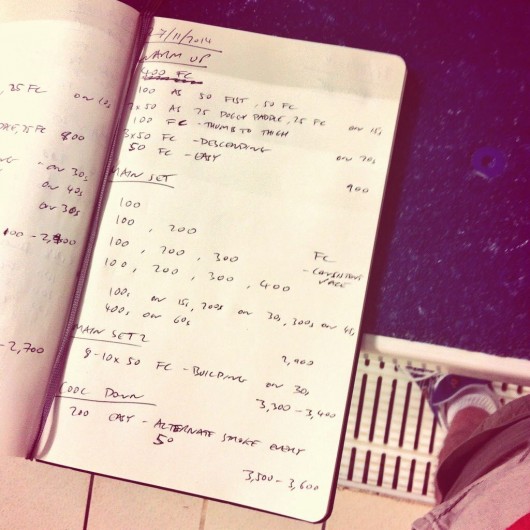 25 FC on 10s
25 FC 800
on 30s
on 40s
on 30s
- 2,700
27/11/2014
WARM UP
400 FC
100 AS 50 FIST, 50 FC
7x50 AS 25 DOGGY PADDLE, 25 FC on 15s
100 FC - THUMB TO THIGH
3x50 FC - DESCENDING on 20s
50 FC - EASY
900
MAIN SET
100
100, 200
100, 200, 300 FC
- CONSISTENT PACE
100, 200, 300, 400
100s on 15s, 200s on 30s, 300s on 45s
400s on 60s
2,900
MAIN SET 2
8-10x 50 FC - BUILDING on 30s
3,300 - 3,400
COOL DOWN
200 EASY - ALTERNATE STROKE EVERY
50
3,500 - 3,600